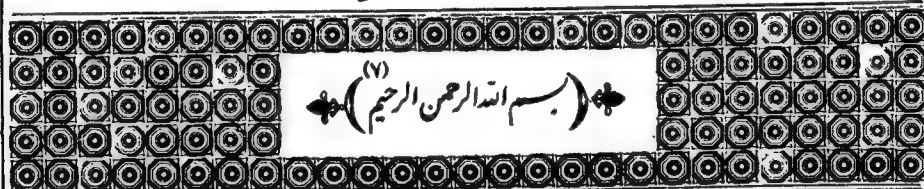 (بسم الله الرحمن الرحيم (٧))